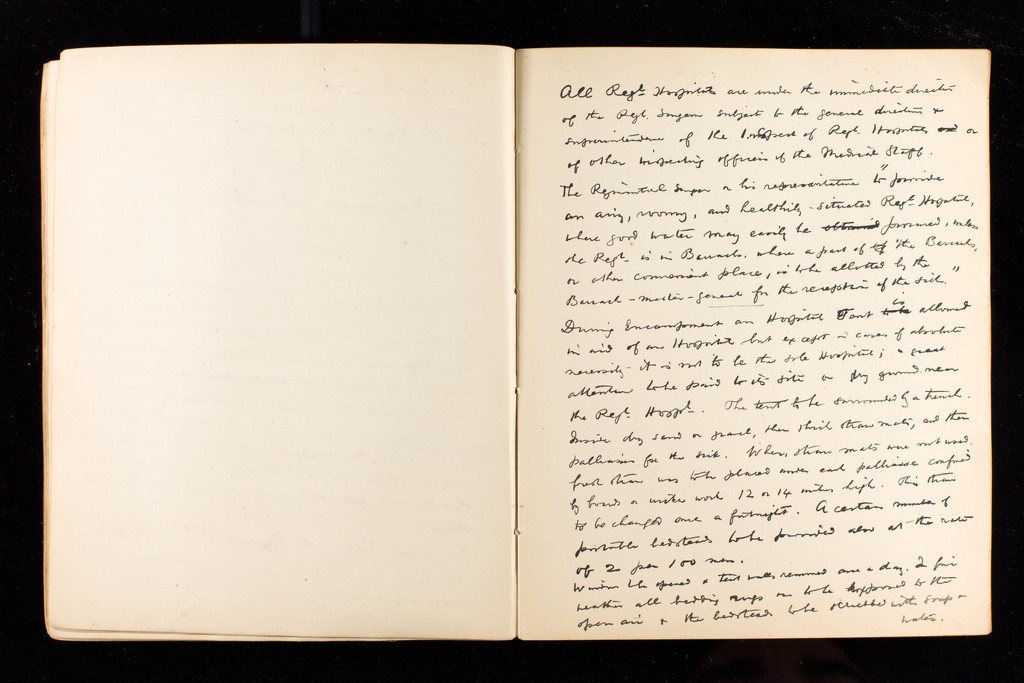 All Regtl Hospitals are under the immediate direction
of the Regtl. Surgeon subject to the general direction &
superintendence of the Inspect of Regtl Hospitals or
of other inspecting officers of the Medical Staff.
The Regimental Surgeon or his representative to "provide
an airy, roomy, and healthily-situated Regtl Hospital,
where good water may easily be obtained procured, unless
the Regt. is in Barracks, where a part of the Barracks,
or other convenient place, is to be allotted by the
Barrack-master-general for the reception of the sick."
During Encampment an Hospital Tent is allowed
in aid of an Hospital but except in cases of absolute
necessity it is not to be the sole Hospital; & great
attention to be paid to its site on dry ground near
the Regtl Hospl. The tent to be surrounded by a trench.
Inside dry sand or gravel, then thick straw mats, and then
palliasses for the sick. When straw mats were not used
fresh straw was to be placed under each palliasse confined
by boards or wicker work 12 or 14 inches high. This straw
to be changed once a fortnight. A certain number of
portable bedsteads to be provided also at the rate
of 2 per 100 men.
to be opened & tent walls removed once a day. In fine
weather all bedding rugs &c to be exposed to the
open air & the bedsteads to be scrubbed with soap &
water.